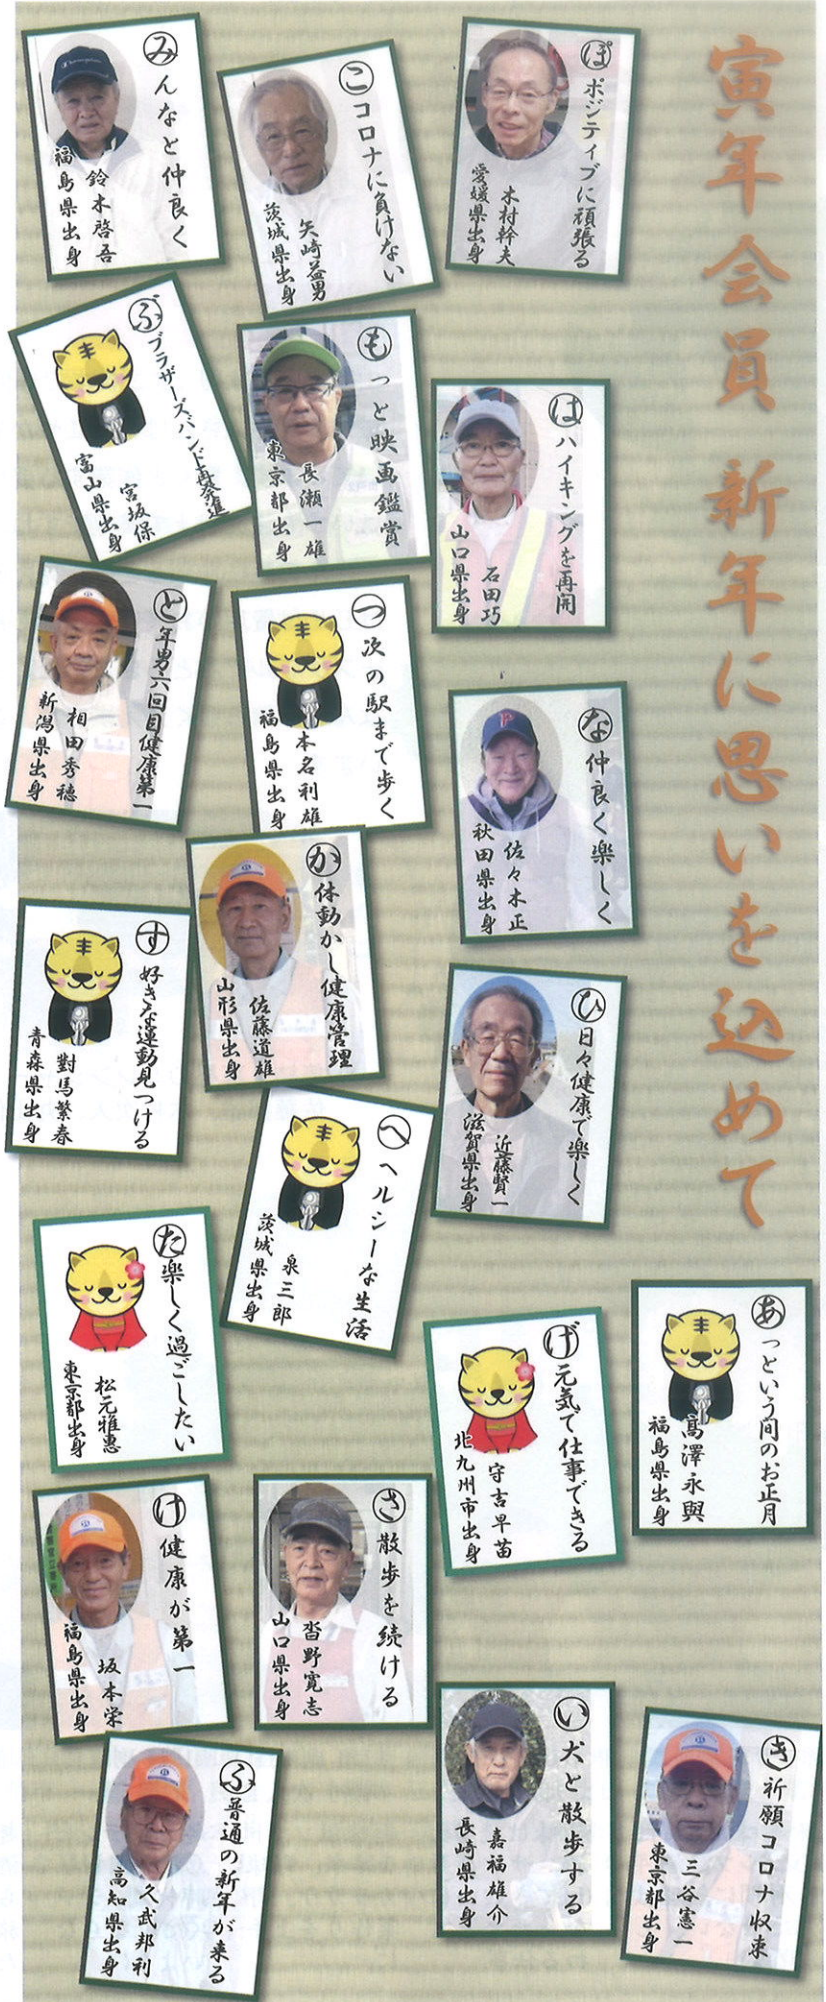 寅年会員 新年に思いを込めて
ぽ ポジティブに頑張る
木村幹夫
愛媛県出身
こ コロナに負けない
矢崎益男
茨城県出身
みんなと仲良く
鈴木啓吾
福島県出身
は ハイキングを再開
石田巧
山口県出身
もっと映画鑑賞
長瀬一雄
東京都出身
ぶ ブラザーズバンド再発進
宮坂保
富山県出身
な 仲良く楽しく
佐々木正
秋田県出身
つ 次の駅まで歩く
本名利雄
福島県出身
と 年男六回目健康第一
相田秀穂
新潟県出身
ひ 日々健康で楽しく
近藤賢一
滋賀県出身
か 体動かし健康管理
佐藤道雄
山形県出身
す 好きな運動見つける
對馬繁春
青森県出身
へ ヘルシーな生活
泉三郎
茨城県出身
た 楽しく過ごしたい
松元雅惠
東京都出身
あっという間のお正月
髙澤永興
福島県出身
げ 元気で仕事できる
守吉早苗
北九州市出身
さ 散歩を続ける
沓野寛志
山口県出身
け 健康が第一
坂本栄
福島県出身
き 祈願コロナ収束
三谷憲一
東京都出身
い 犬と散歩する
嘉福雄介
長崎県出身
ふ 普通の新年が来る
久武邦利
高知県出身